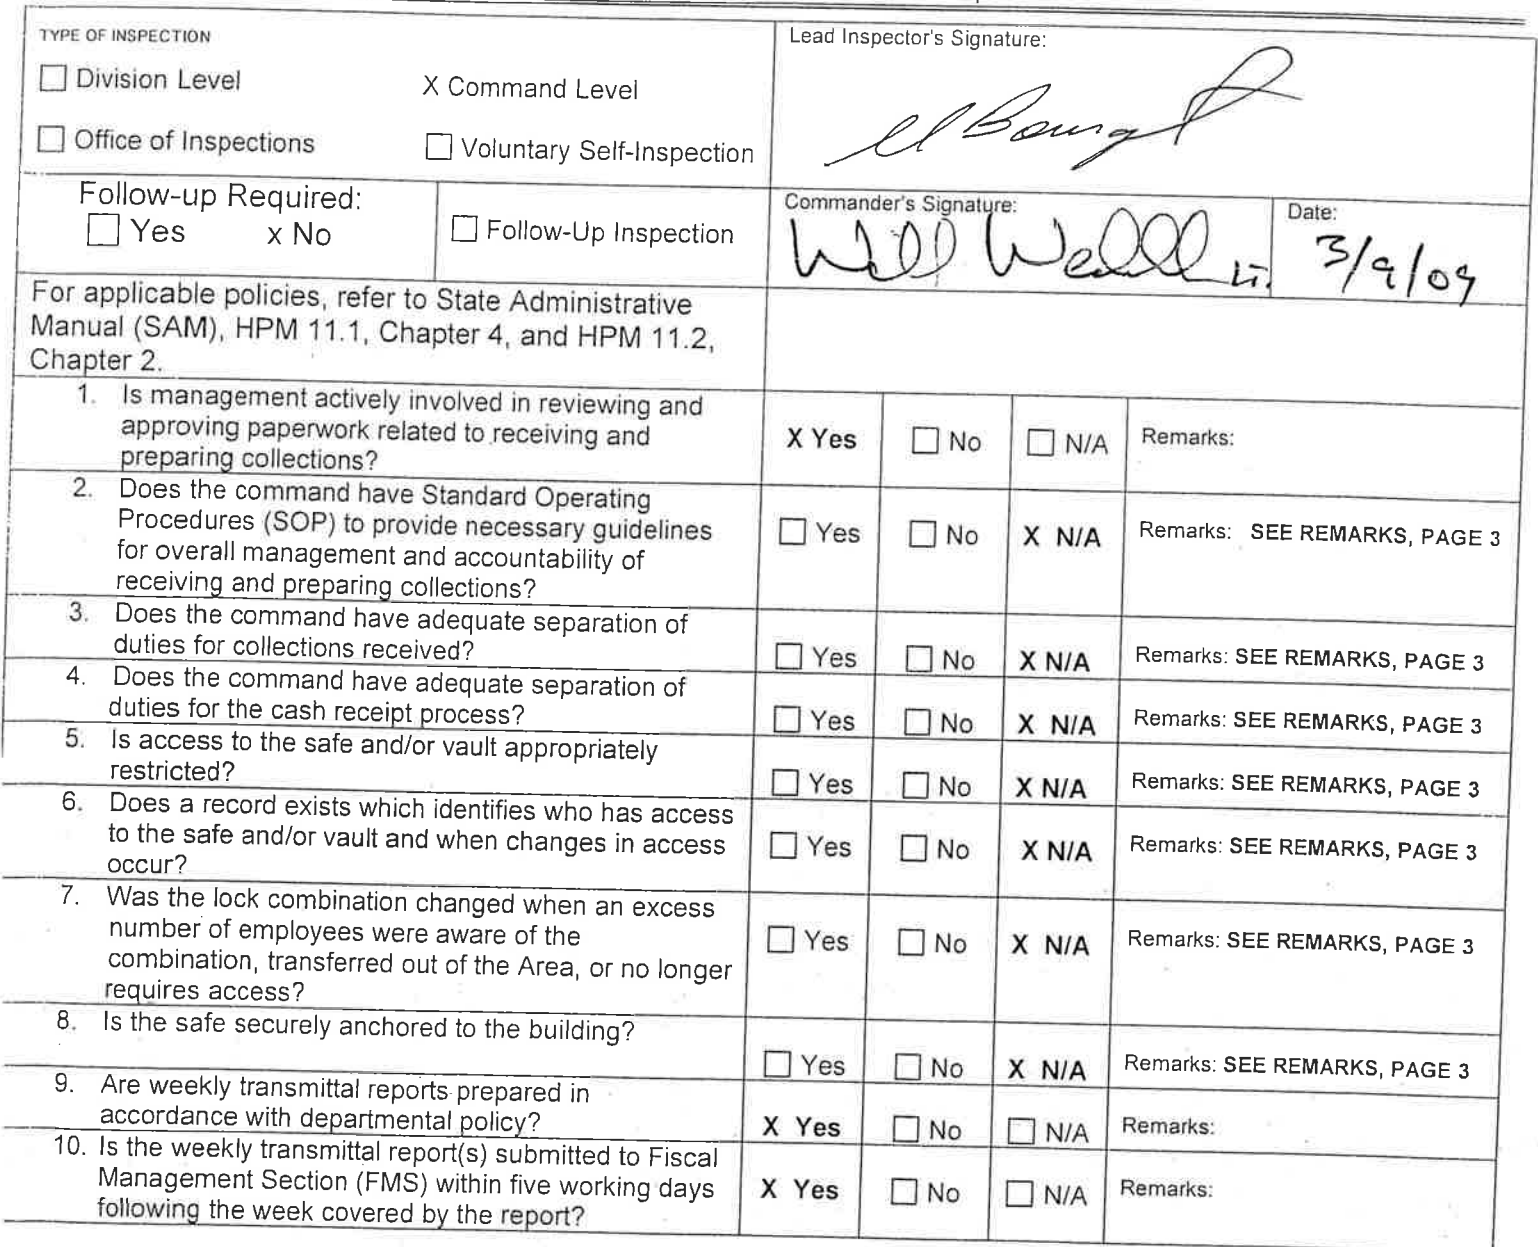 TYPE OF INSPECTION
☐ Division Level X Command Level
☐ Office of Inspections ☐ Voluntary Self-Inspection
Lead Inspector's Signature:
Follow-up Required:
☐ Yes x No
☐ Follow-Up Inspection
Commander's Signature:
Will
Date:
3/9/09
For applicable policies, refer to State Administrative
Manual (SAM), HPM 11.1, Chapter 4, and HPM 11.2,
Chapter 2.
1. Is management actively involved in reviewing and
approving paperwork related to receiving and
preparing collections?
X Yes ☐ No ☐ N/A Remarks:
2. Does the command have Standard Operating
Procedures (SOP) to provide necessary guidelines
for overall management and accountability of
receiving and preparing collections?
☐ Yes ☐ No X N/A Remarks: SEE REMARKS, PAGE 3
3. Does the command have adequate separation of
duties for collections received?
☐ Yes ☐ No X N/A Remarks: SEE REMARKS, PAGE 3
4. Does the command have adequate separation of
duties for the cash receipt process?
☐ Yes ☐ No X N/A Remarks: SEE REMARKS, PAGE 3
5. Is access to the safe and/or vault appropriately
restricted?
☐ Yes ☐ No X N/A Remarks: SEE REMARKS, PAGE 3
6. Does a record exists which identifies who has access
to the safe and/or vault and when changes in access
occur?
☐ Yes ☐ No X N/A Remarks: SEE REMARKS, PAGE 3
7. Was the lock combination changed when an excess
number of employees were aware of the
combination, transferred out of the Area, or no longer
requires access?
☐ Yes ☐ No X N/A Remarks: SEE REMARKS, PAGE 3
8. Is the safe securely anchored to the building?
☐ Yes ☐ No X N/A Remarks: SEE REMARKS, PAGE 3
9. Are weekly transmittal reports prepared in
accordance with departmental policy?
X Yes ☐ No ☐ N/A Remarks:
10. Is the weekly transmittal report(s) submitted to Fiscal
Management Section (FMS) within five working days
following the week covered by the report?
X Yes ☐ No ☐ N/A Remarks: